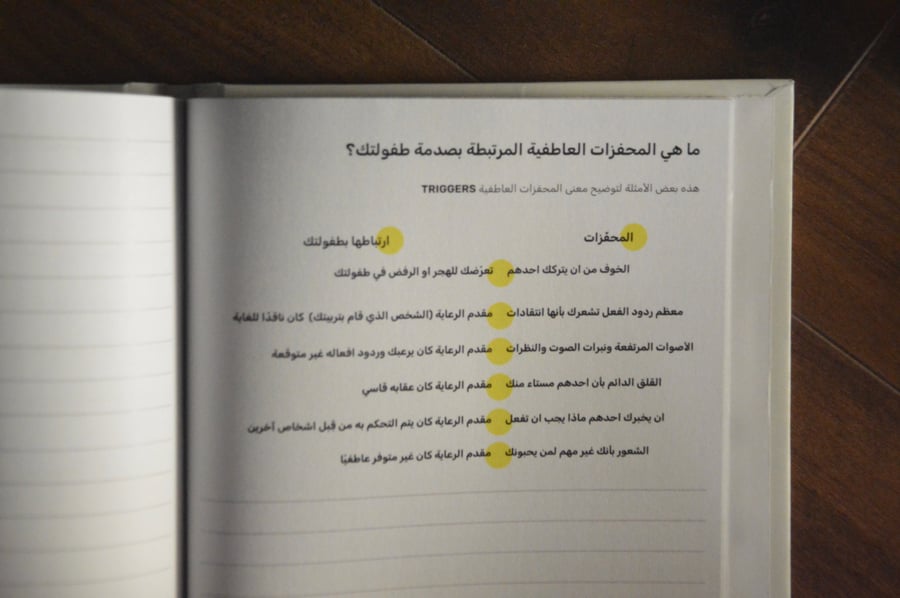 ما هي المحفزات العاطفية المرتبطة بصدمة طفولتك؟
هذه بعض الأمثلة لتوضيح معنى المحفزات العاطفية TRIGGERS
المحفّزات ارتباطها بطفولتك
الخوف من ان يتركك احدهم تعرّضك للهجر او الرفض في طفولتك
معظم ردود الفعل تشعرك بأنها انتقادات مقدم الرعاية (الشخص الذي قام بتربيتك) كان ناقدًا للغاية
الأصوات المرتفعة ونبرات الصوت والنظرات مقدم الرعاية كان يرعبك وردود افعاله غير متوقعة
القلق الدائم بأن احدهم مستاء منك مقدم الرعاية كان عقابه قاسي
ان يخبرك احدهم ماذا يجب ان تفعل مقدم الرعاية كان يتم التحكم به من قبل اشخاص آخرين
الشعور بأنك غير مهم لمن يحبونك مقدم الرعاية كان غير متوفر عاطفيًا